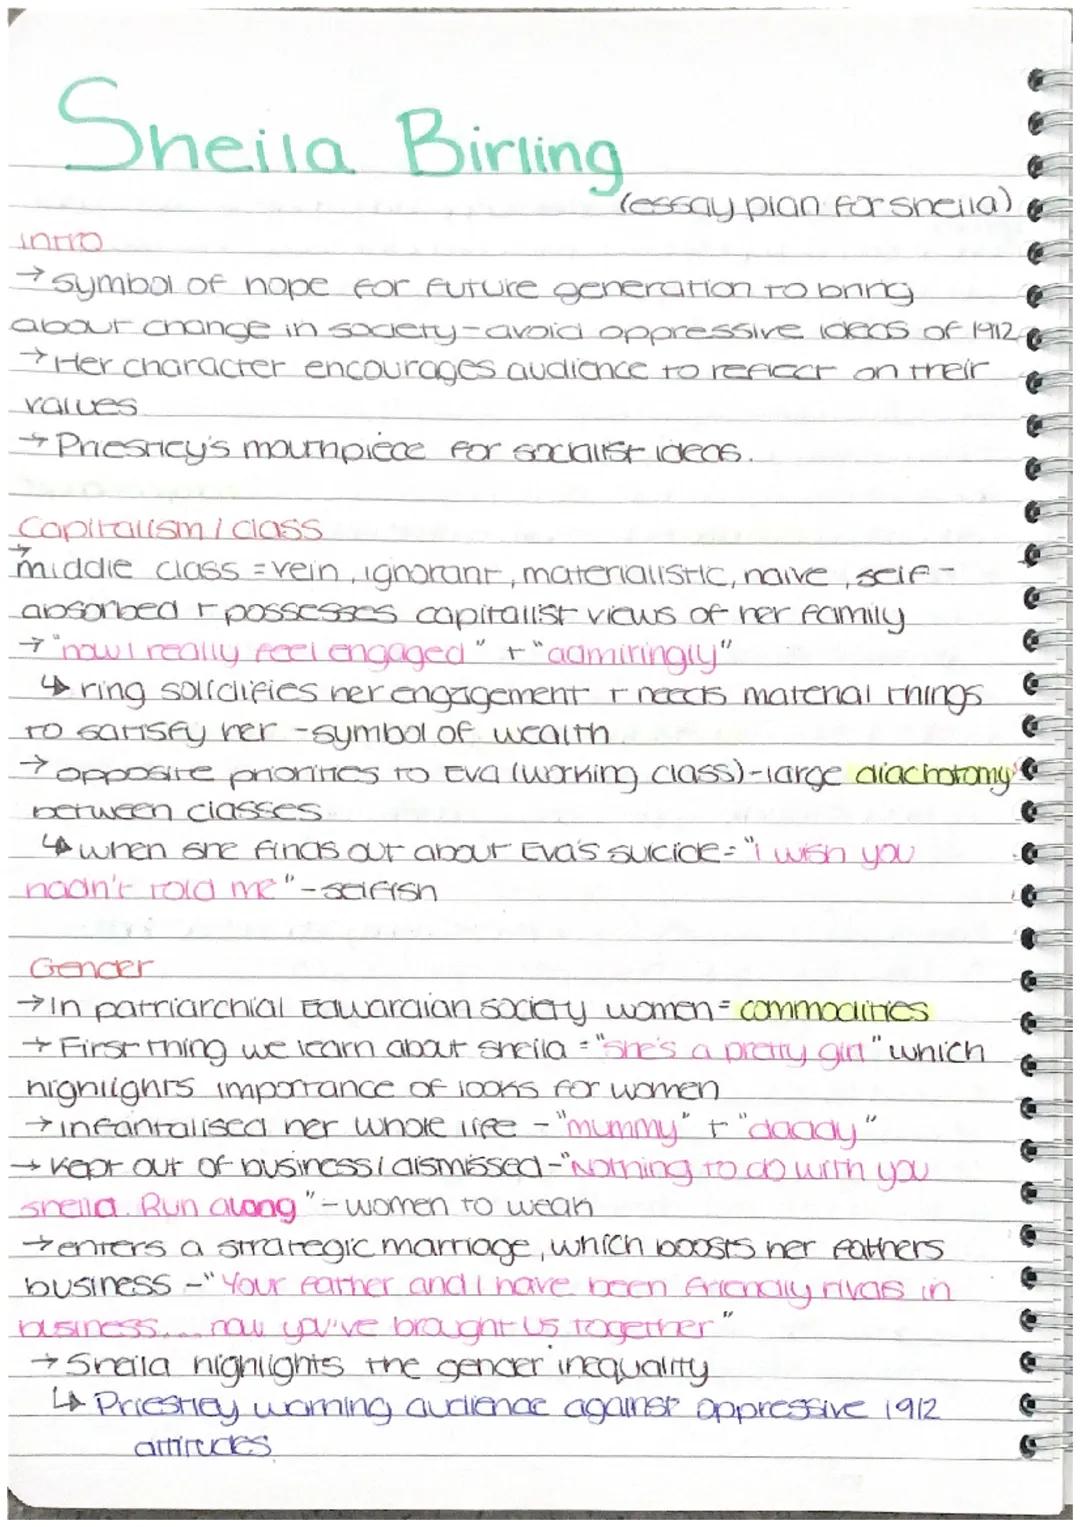 Sheila Birling
(essay plan for sheila)
intro
→ symbol of hope for future generation to bring
about change in society - avoid oppressive ideas of 1912
→ Her character encourages audience to reflect on their
values
→ Priestley's mouthpiece for socialist ideas.
Capitalism / class
→
middle class = vein, ignorant, materialistic, naive, self-
absorbed + possesses capitalist views of her family
→ "now I really feel engaged" + "admiringly"
↳ ring solidifies her engagement + needs material things
to satisfy her - symbol of wealth
→ opposite priorities to Eva (working class) - large diachotomy
between classes
↳ when she finds out about Eva's suicide = "i wish you
hadn't told me" - selfish
Gender
→ In patriarchial Edwardian society women = commodities
→ First thing we learn about sheila = "she's a pretty girl" which
highlights importance of looks for women
→ infantalised her whole life - "mummy" + "daddy"
→ kept out of business / dismissed - "Nothing to do with you
sheila. Run along" - women to weak
→ enters a strategic marriage, which boosts her fathers
business - "Your father and I have been friendly rivals in
business.... now you've brought us together"
→ Sheila highlights the gender inequality
↳ Priestley warning audience against oppressive 1912
attitudes